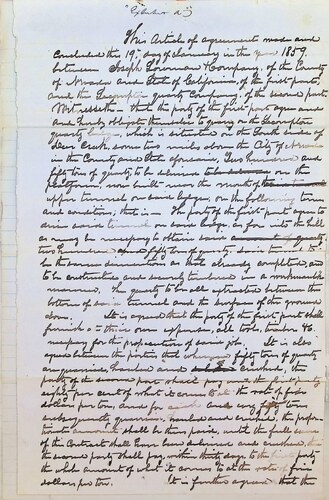 "Exhibit A"
This Article of agreement made and
concluded the 19th day of January in the year 1859
between Joseph & Company, of the County
of Nevada and State of California, of the first part,
and the Quartz Company, of the second part,
Witnesseth. That the party of the first part agree and
and hereby obligate themselves to quarry on the
quartz ledge, which is situated on the South side of
Deer Creek some two miles above the City of Nevada
in the County and State aforesaid, Two hundred and
fifty tons of quartz to be delivered on the
platform, now built near the mouth of
upper tunnel on said ledge, on the following terms
and conditions, that is – The party of the first part agree to
said tunnel on said ledge as far into the hill
as may be necessary to obtain said
two hundred and fifty tons of quartz, said tunnel to
be the same size as that already completed, and
to be constructed and securely timbered in a workmanlike
manner. The quartz to be all extracted between the
bottom of said tunnel and the surface of the ground
above. It is agreed that the party of the first part shall
furnish at their own expense, all tools, timber &c.
necessary for the prosecution of said job. It is also
agreed between the parties that whenever fifty tons of quartz
are quarried, hauled and crushed, the
party of the second part shall pay unto the first party
eighty per cent of what it comes to at the rate of five
dollars per ton, and for each and every fifty tons
subsequently quarried, hauled and crushed, the
amount shall be then paid, until the full
of the Contract shall have been delivered and crushed, then
the second party shall pay, within thirty days to the first party
the whole amount of what it comes to at the rate of five
dollars per ton. It is further agreed that the